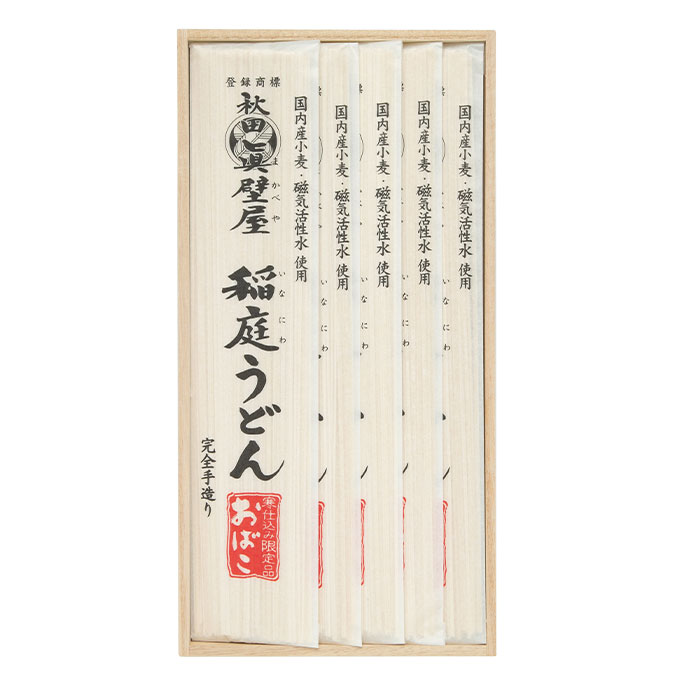 登録商標
秋田眞壁屋
まかべや
稲庭うどん
いなにわ
完全手造り
寒仕込み限定品
おばこ
国内産小麦・磁気活性水 使用
国内産小麦・磁気活性水 使用
いなにわ
国内産小麦・磁気活性水 使用
いなにわ
国内産小麦・磁気活性水 使用
いなにわ
国内産小麦・磁気活性水 使用
いなにわ